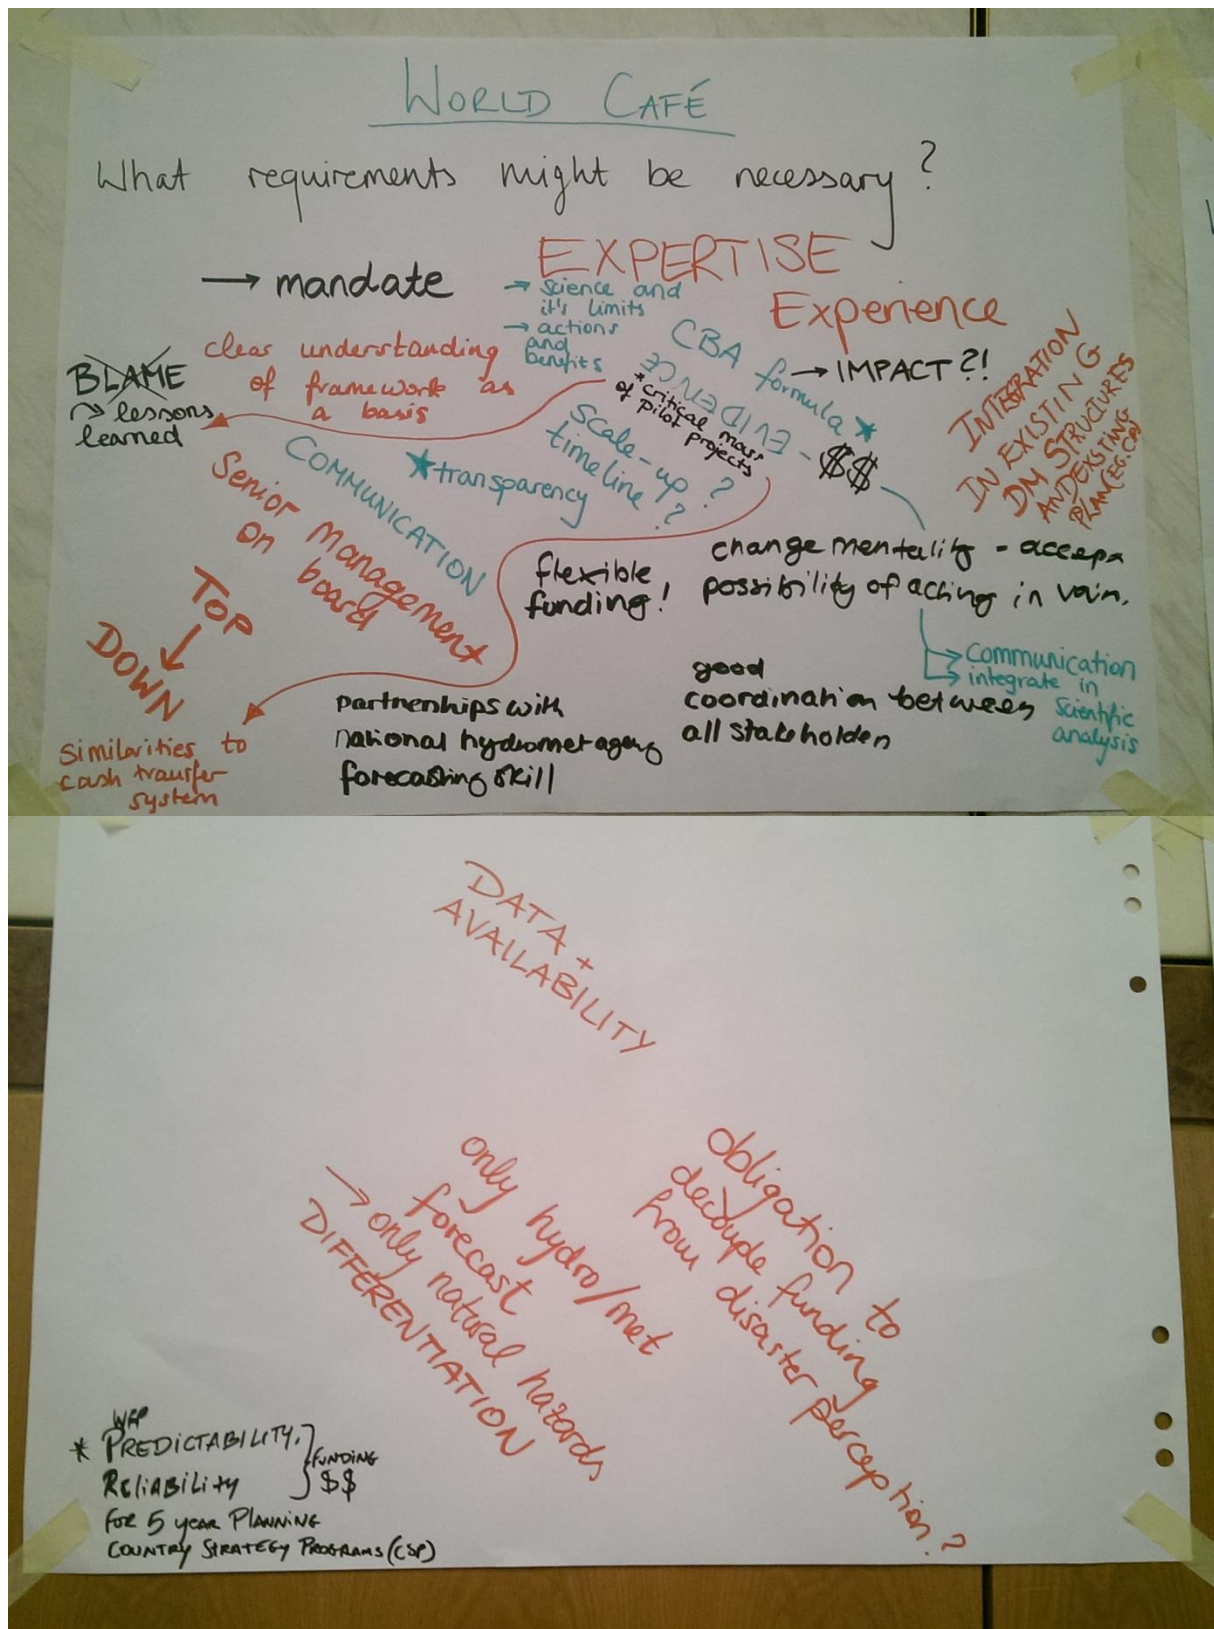 WORLD CAFÉ
What requirements might be necessary?
→ mandate
EXPERTISE
→ science and
it's limits
→ actions
and
benefits
Experience
BLAME
→ lessons
learned
clear understanding
of framework as
a basis
CBA formula ★
→ IMPACT ?!
EVIDENCE - $$
* critical mass
of pilot projects
scale-up?
timeline?
INTEGRATION
IN EXISTING
DM STRUCTURES
COMMUNICATION
★ transparency
Senior Management
on board
TOP
↓
DOWN
flexible
funding!
change mentality - accept
possibility of acting in vain.
→ Communication
→ integrate in
scientific
analysis
good
coordination between
all stakeholders
partnerships with
national hydromet agency
forecasting skill
similarities to
cash transfer
system
DATA +
AVAILABILITY
only hydro/met
forecast
→ only natural hazards
DIFFERENTIATION
obligation to
decouple funding
from disaster perception?
WFP
* PREDICTABILITY,
RELIABILITY
} FUNDING
$$
FOR 5 YEAR PLANNING
COUNTRY STRATEGY PROGRAMS (CSP)